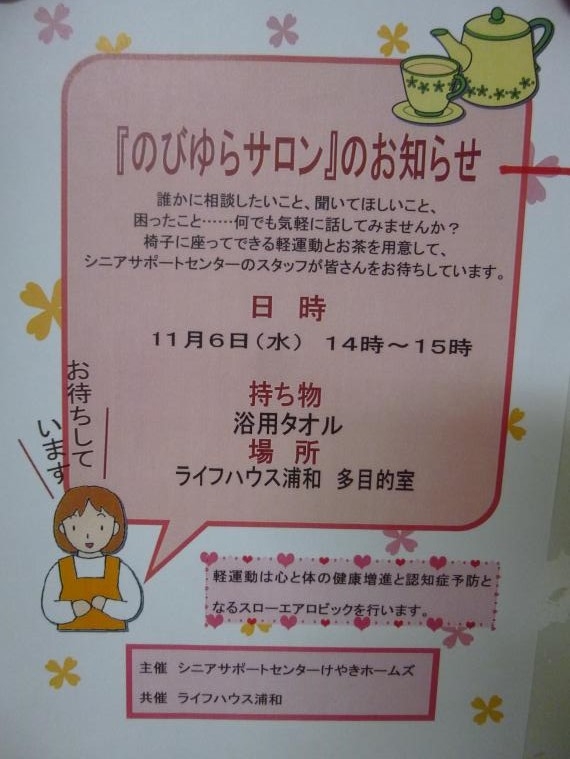 『のびゆらサロン』のお知らせ
誰かに相談したいこと、聞いてほしいこと、
困ったこと……何でも気軽に話してみませんか？
椅子に座ってできる軽運動とお茶を用意して、
シニアサポートセンターのスタッフが皆さんをお待ちしています。
日　時
１１月６日（水）　１４時～１５時
持ち物
浴用タオル
場　所
ライフハウス浦和　多目的室
お待ちして
います
軽運動は心と体の健康増進と認知症予防と
なるスローエアロビックを行います。
主催　シニアサポートセンターけやきホームズ
共催　ライフハウス浦和